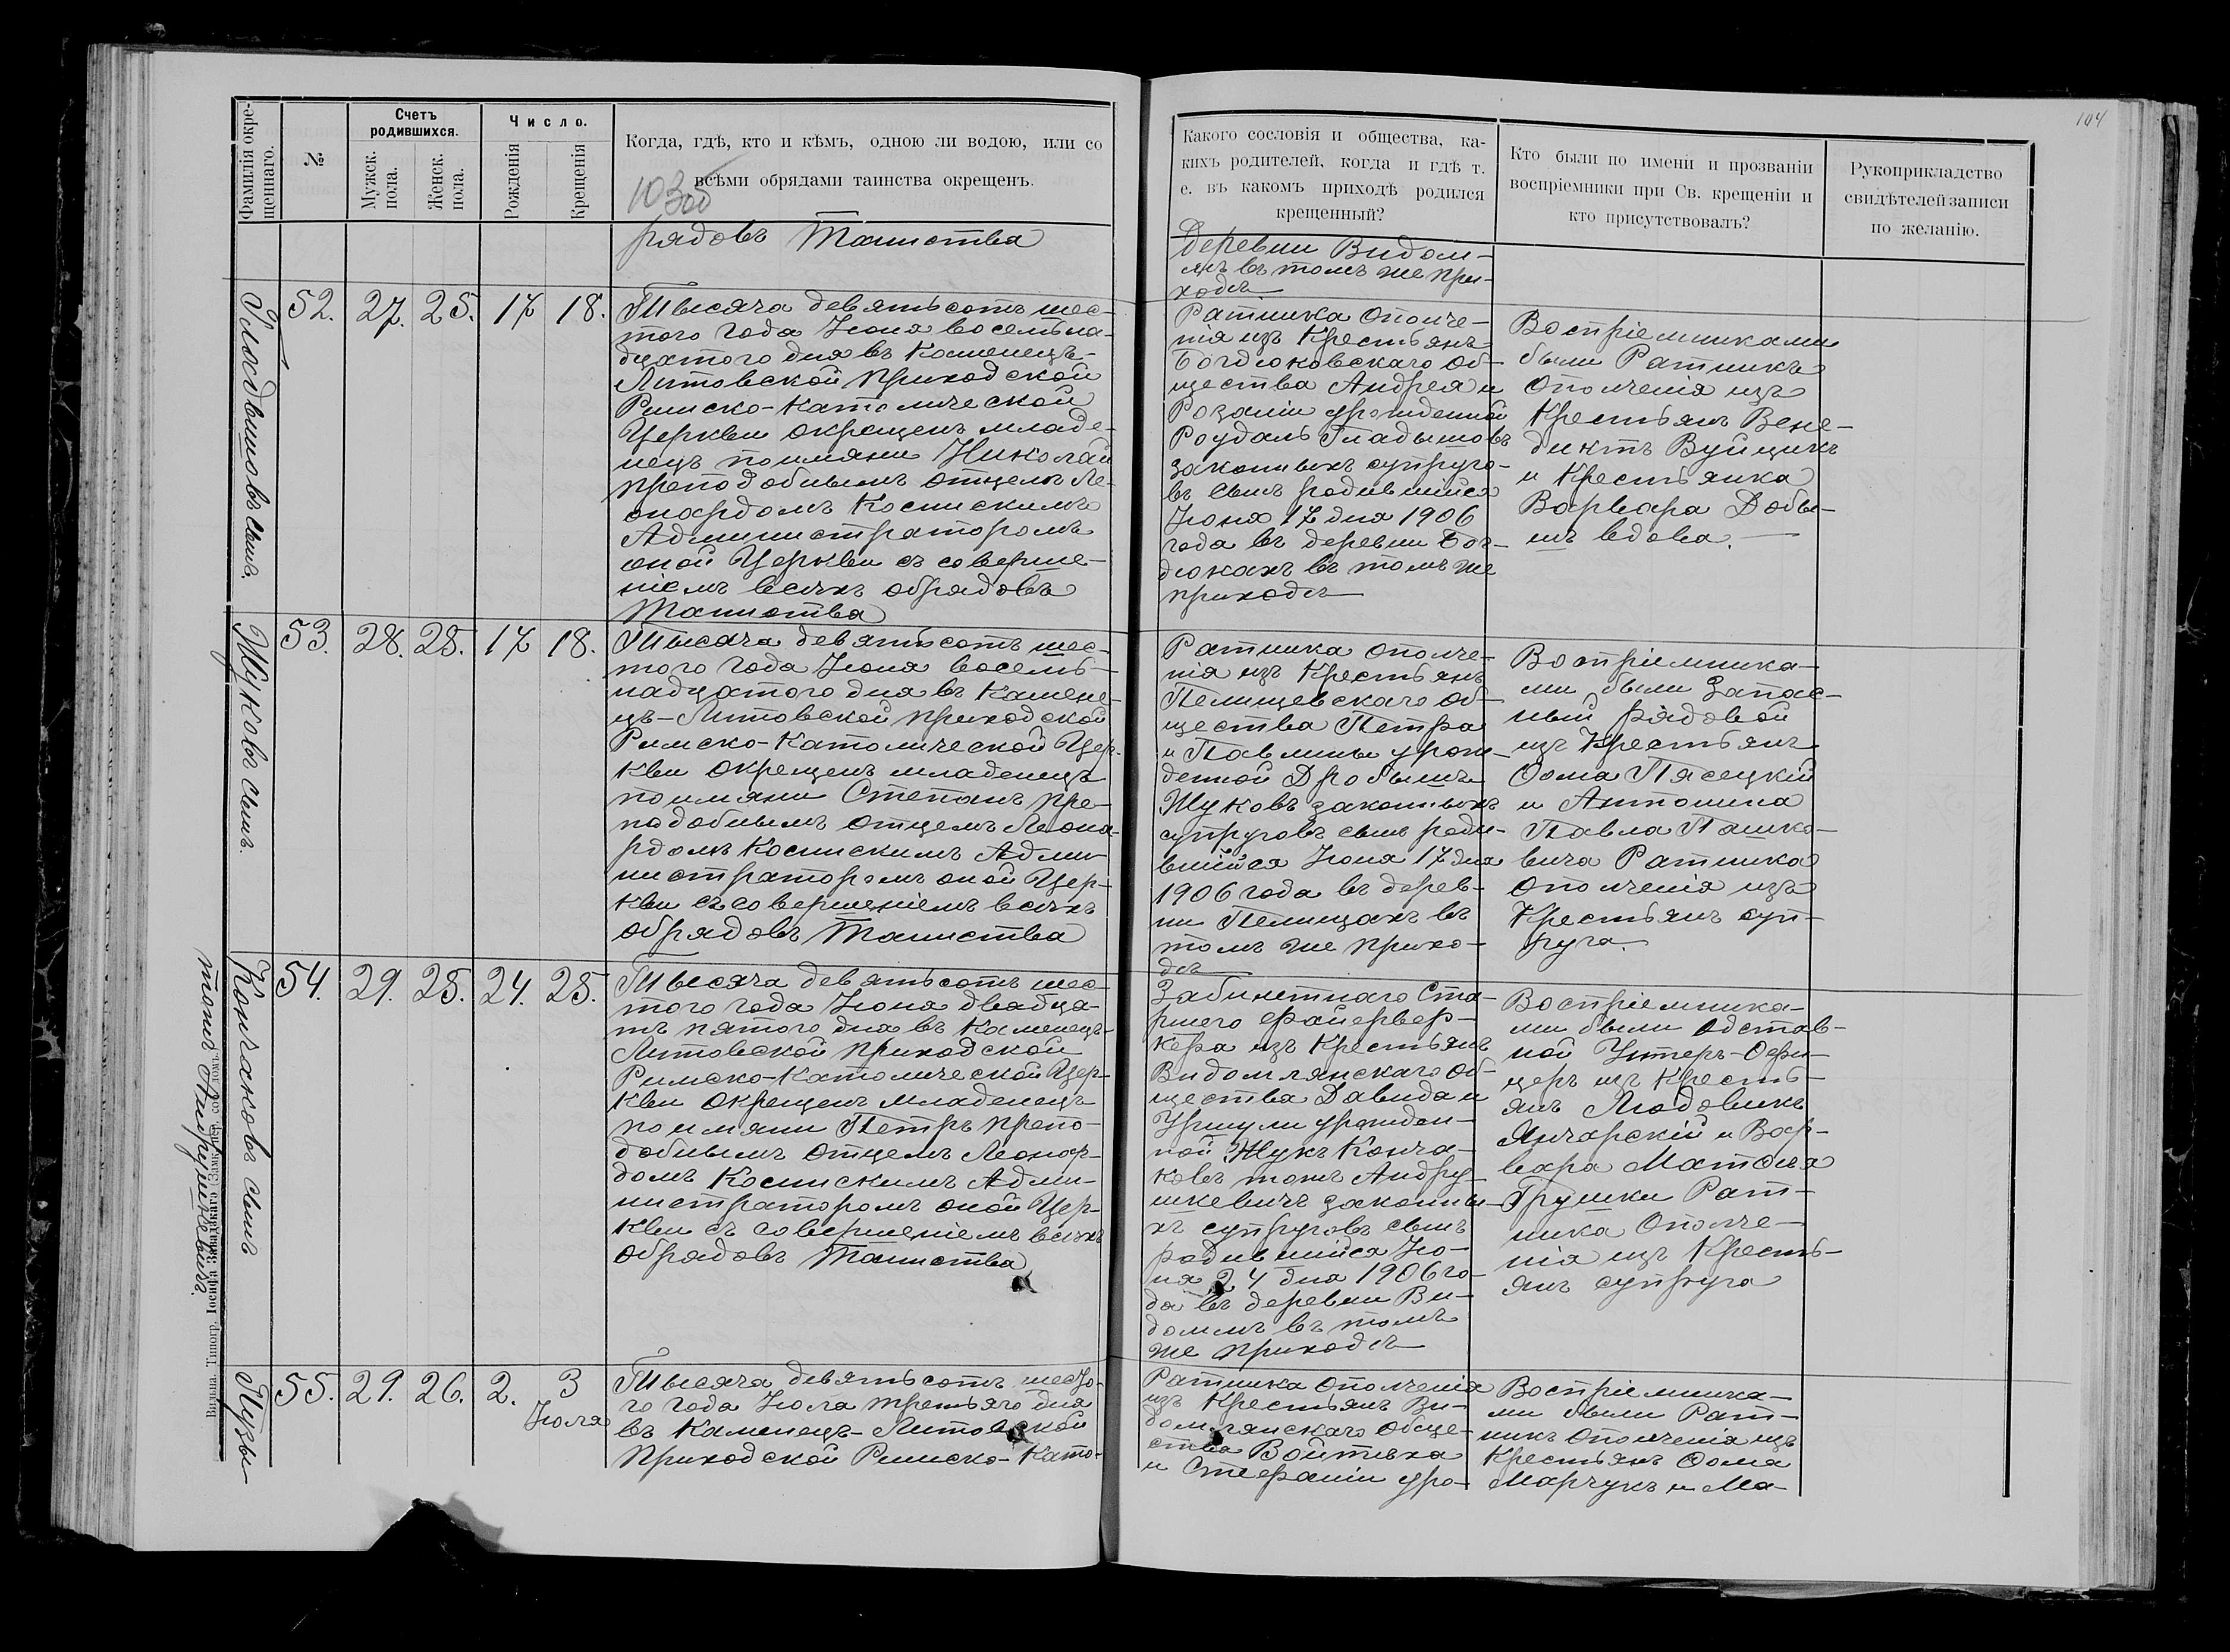 104
Фамилія окре-
щеннаго.
№
Счетъ
родившихся.
Мужск.
пола.
Женск.
пола.
Число.
Рожденія
Крещенія
Когда, гдѣ, кто и кѣмъ, одною ли водою, или со
всѣми обрядами таинства окрещенъ.
Какого сословія и общества, ка-
кихъ родителей, когда и гдѣ т.
е. въ какомъ приходѣ родился
крещенный?
Кто были по имени и прозваніи
воспріемники при Св. крещеніи и
кто присутствовалъ?
Рукоприкладство
свидѣтелей записи
по желанію.
рядовъ Таинства
Деревни Видом-
лѣ въ томъ же при-
ходѣ
Гладышовъ сынъ.
52. 27. 25. 17 18.
Тысяча девятьсотъ шес-
того года Іюня восемьна-
дцатого дня въ Каменецъ-
Литовской приходской
Римско-Католической
Церкви окрещенъ младе-
нецъ поимяни Николай
преподобнымъ отцемъ Ле-
онардомъ Коспискимъ
Администраторомъ
оной Церкви съ соверше-
ніемъ всѣхъ обрядовъ
Таинства
Ратника Ополче-
нія изъ Крестьянъ
Богдюковскаго об-
щества Андрея и
Розаліи урожденной
Роудаль Гладышовъ
законныхъ супруго-
въ сынъ родившійся
Іюня 17 дня 1906
года въ деревни Бог-
дюкахъ въ томъ же
приходѣ
Воспріемниками
были Ратникъ
Ополченія изъ
Крестьянъ Вене-
диктъ Вуйцикъ
и Крестьянка
Варвара Добы-
шъ вдова.
Жуковъ сынъ.
53. 28. 25. 17 18.
Тысяча девятьсотъ шес-
того года Іюня восемь-
надцатого дня въ Камене-
цъ-Литовской приходской
Римско-Католической Цер-
кви окрещенъ младенецъ
поимяни Степанъ пре-
подобнымъ отцемъ Леона-
рдомъ Коспискимъ Адми-
нистраторомъ оной Цер-
кви съ совершеніемъ всѣхъ
обрядовъ Таинства
Ратника ополче-
нія изъ Крестьянъ
Пелищевскаго об-
щества Петра
и Павлины урож-
денной Дробышъ
Жуковъ законныхъ
супруговъ сынъ роди-
вшійся Іюня 17 дня
1906 года въ дерев-
ни Пелищахъ въ
томъ же прихо-
дѣ
Воспріемника-
ми были Запас-
ный рядовой
изъ Крестьянъ
Ѳома Пясецкій
и Антонина
Павла Пашко-
вича Ратника
Ополченія изъ
Крестьянъ суп-
руга.
Кончаковъ сынъ
тожъ Андрушкевичъ.
54. 29. 25. 24. 25.
Тысяча девятьсотъ шес-
того года Іюня двадца-
ть пятого дня въ Каменецъ-
Литовской приходской
Римско-Католической Цер-
кви окрещенъ младенецъ
поимяни Петръ препо-
добнымъ отцемъ Леонар-
домъ Коспискимъ Адми-
нистраторомъ оной Цер-
кви съ совершеніемъ всѣхъ
обрядовъ Таинства
Забилетнаго Ста-
ршего Фаервер-
кера изъ Крестьянъ
Видомлянскаго об-
щества Давида и
Уршули урожден-
ной Жукъ Конча-
ковъ тожъ Андру-
шкевичъ законны-
хъ супруговъ сынъ
родившійся Ію-
ня 24 дня 1906 го-
да въ деревни Ви-
домлѣ въ томъ
же приходѣ
Воспріемника-
ми были Одстав-
ной Унтеръ-Офи-
церъ изъ Кресть-
янъ Людовикъ
Янчарскій и Вар-
вара Матѳея
Грушки Рат-
ника Ополче-
нія изъ Кресть-
янъ супруга
Пузы-
55. 29. 26. 2. 3
Іюля
Тысяча девятьсотъ шесто-
го года Іюля третьяго дня
въ Каменецъ-Литовской
Приходской Римско-Като-
Ратника Ополченія
изъ Крестьянъ Ви-
домлянскаго обще-
ства Войтѣха
и Стефаніи уро-
Воспріемника-
ми были Рат-
никъ Ополченія изъ
Крестьянъ Ѳома
Марчукъ и Ма-
Вильна. Типогр. Іосифа Завадзкаго